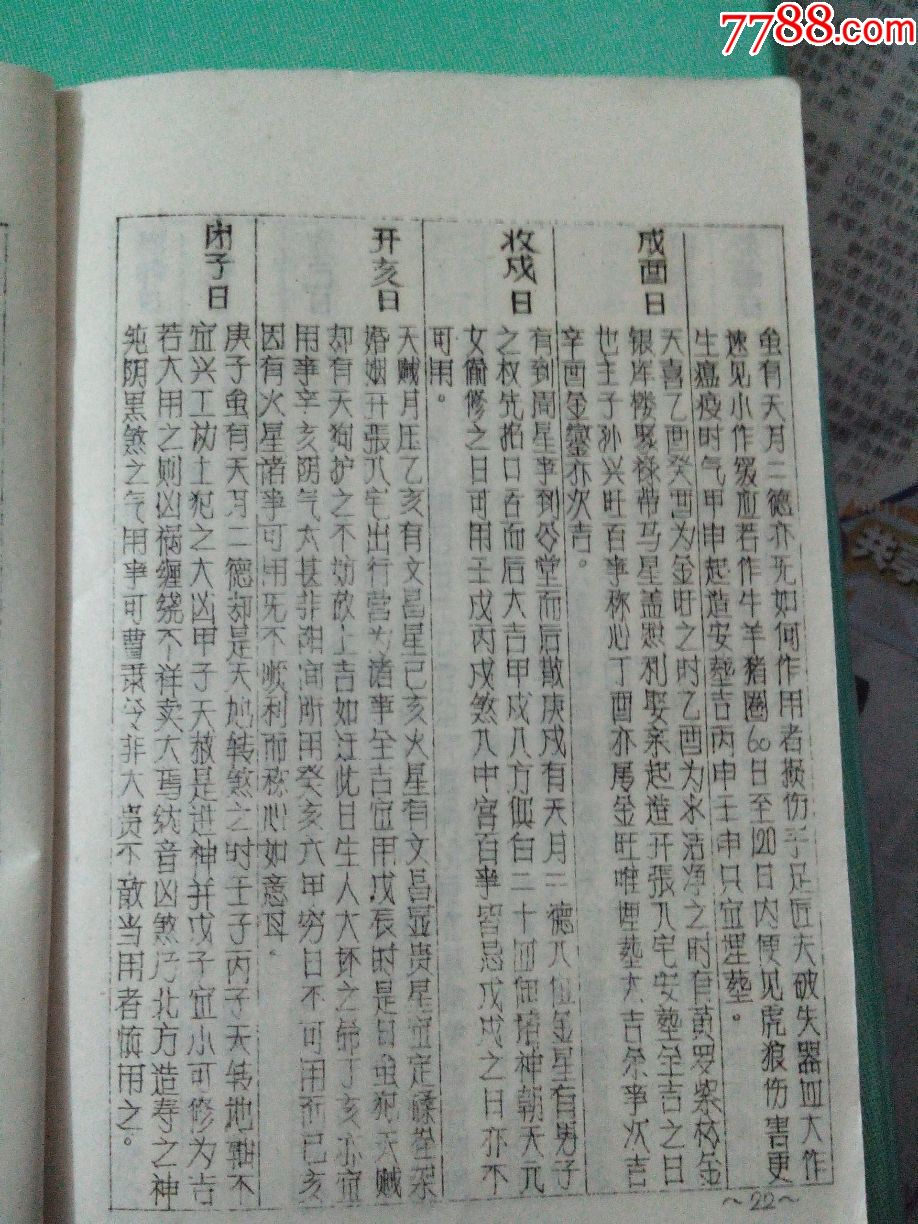 7788.com
虽有天月二德亦无如何作用者损伤手足匠夫破失器皿大作
速见小作缓应若作牛羊猪圈60日至120日内便见虎狼伤害更
生瘟疫时气甲申起造安葬吉丙申壬申只宜埋葬。
成酉日
天喜乙酉癸酉为金旺之时乙酉为水洁净之时有黄罗紫檀金
银库楼聚禄带马星盖照利娶亲起造开張入宅安葬全吉之日
也主子孙兴旺百事称心丁酉亦属金旺唯埋葬大吉余事次吉
辛酉金鑾亦次吉。
收戍日
有到周星事到公堂而后散庚戍有天月二德入值金星有男子
之权先招口舌而后大吉甲戍八方俱白二十四個诸神朝天元
女俻修之日可用壬戍丙戍煞入中宫百事皆忌戊戍之日亦不
可用。
开亥日
天贼月压乙亥有文昌星己亥火星有文昌显贵星宜定磉
婚姻开張入宅出行营为诸事全吉宜用戊辰时是日虽犯天贼
却有天狗护之不妨故上吉如辻此日生人大坏之命丁亥亦宜
用事辛亥阴气太甚非阳间所用癸亥六甲穷日不可用而已亥
因有火星诸事可用无不顺利而称心如意耳。
闭子日
庚子虽有天月二德却是天地转煞之时壬子丙子天转地轴不
宜兴工动土犯之大凶甲子天赦是进神并戊子宜小可修为吉
若大用之则凶祸缠绕不祥卖大焉纳音凶煞乃北方造寿之神
纯阴黑煞之气用事可曹 冷非大贵不敢当用者慎用之。
~22~
共享